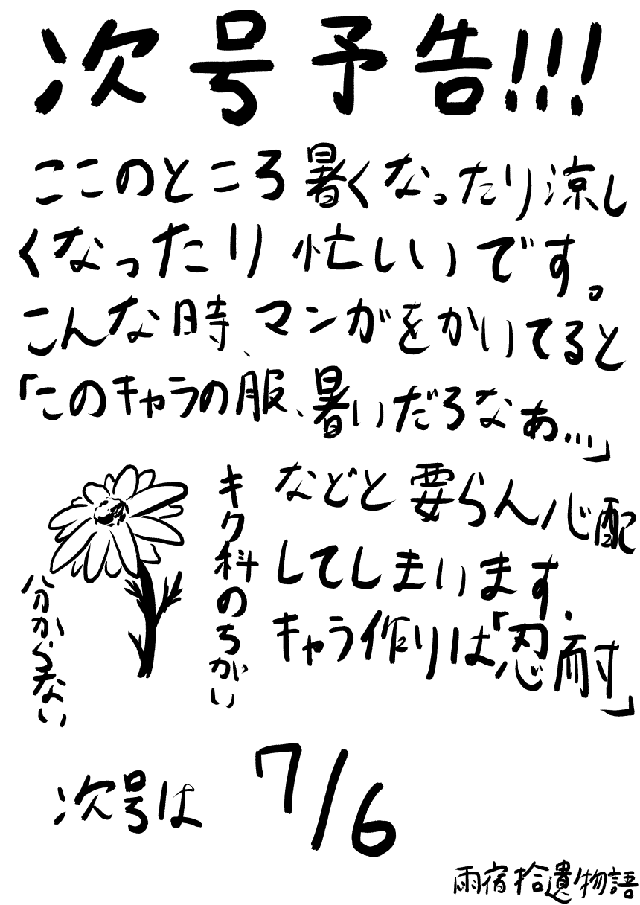 次号予告!!!
ここのところ暑くなったり涼し
くなったり忙しいです。
こんな時、マンガをかいてると
「このキャラの服、暑いだろなぁ…」
などと要らん心配
してしまいます。
キャラ作りは「忍耐」
キク科のちがい
分からない
次号は 7/6
雨宿拾遺物語